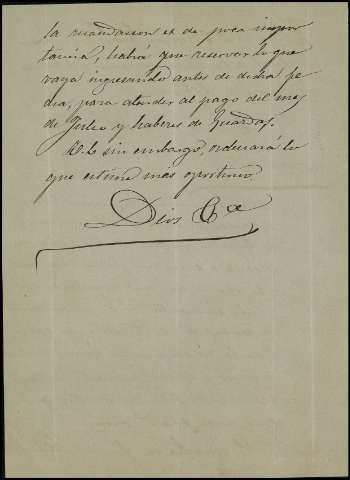 la recaudacion es de poca impor
tancia, habrá que reservar lo que
vaya ingresando antes de dicha fe
cha, para atender al pago del mes
de Julio y haberes de Guardas.
V.S. sin embargo, ordenará lo
que estime más oportuno
Dios &ª